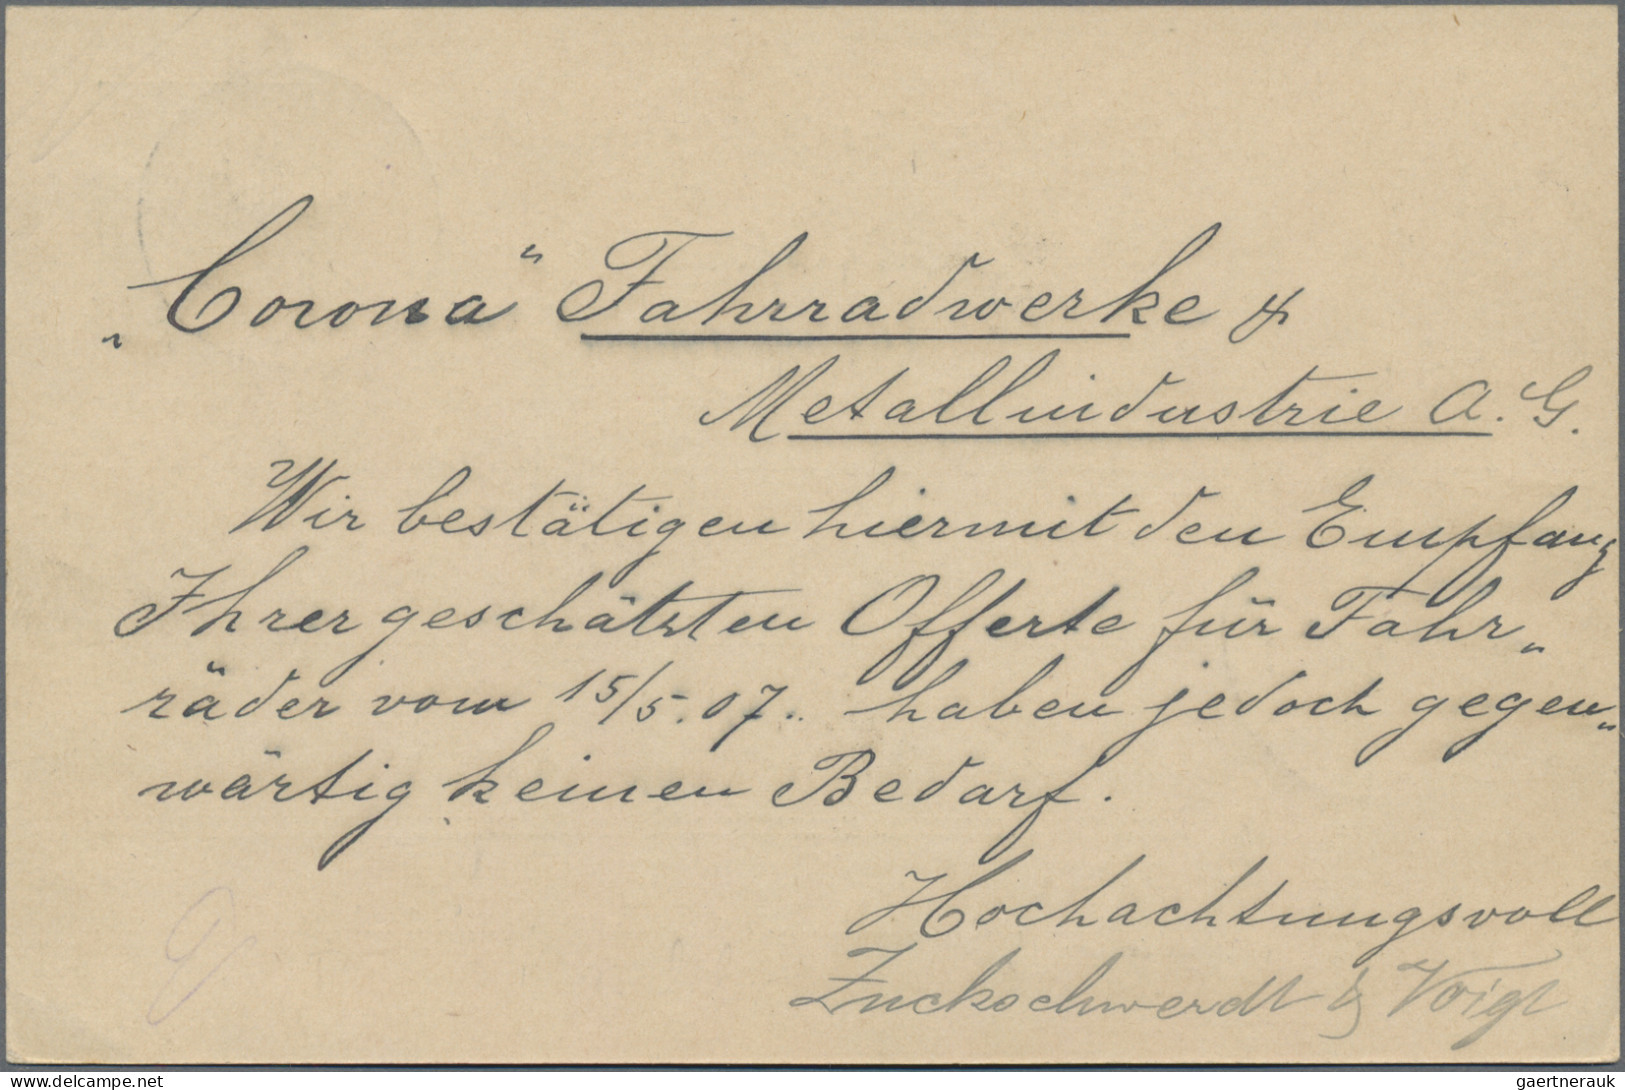 „Corona" Fahrradwerke &
Metallindustrie A.G.
Wir bestätigen hiermit den Empfang
Ihrer geschätzten Offerte für Fahr„
räder vom 15/5.07.. haben jedoch gegen„
wärtig keinen Bedarf.
Hochachtungsvoll
Zuckschwerdt & Voigt
delcampe.net
gaertnerauk